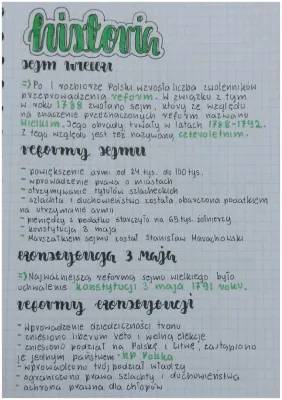 historia
sejm wielki
=) Po I rozbiorze Polski wzrosła liczba zwolenników
przeprowadzenia reform. W związku z tym
w roku 1788 zwołano sejm, który ze względu
na znaczenie przeznaczonych reform nazwano
wielkim. Jego obrady trwały w latach 1788-1792.
Z tego względu jest też nazywany czteroletnim.
reformy sejmu
- powiększenie armi od 24 tys. do 100 tys.
- wprowadzenie prawa o miastach
- otrzymywanie tytułów szlacheckich
- szlachta i duchowieństwo została obarczona podatkiem
na utrzymanie armii
- pieniędzy z podatku starczyło na 65 tys. żołnierzy
- konstytucja 3 maja
- Marszałkiem sejmu został Stanisław Małachowski
konstytucja 3 maja
=) Najważniejszą reformą sejmu wielkiego było
uchwalenie konstytucji 3 maja 1791 roku.
reformy konstytucji
- Wprowadzenie dziedziczności tronu
- zniesiono liberum veto i wolną elekcje
- zniesiono podział na Polskę i Litwę, zastąpiono
je jednym państwem - RP Polska
- wprowadzono trójpodział władzy
- ograniczono prawa szlachty i duchowieństwa
- ochrona prawna dla chłopów